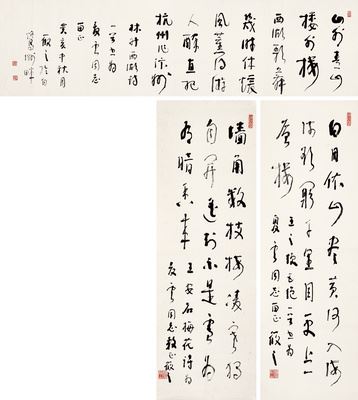 山外青山
楼外楼
西湖歌舞
几时休暖
风薰得游
人醉直把
杭州作汴州
林升西湖诗
一首
夏云同志
正
癸亥中秋月
散之于白
鹭洲畔
白日依山尽黄河入海
流欲穷千里目更上一
层楼
王之涣
夏云同志 正散之
墙角数枝梅凌寒独
自开遥知不是雪为
有暗香来
王安石梅花诗为
夏云同志教正散之